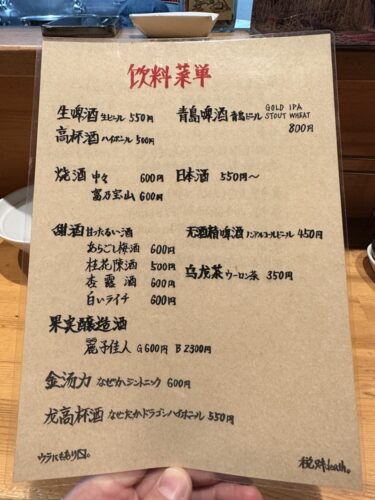 饮料菜単
生啤酒 生ビール 550円
青島啤酒 青島ビール GOLD IPA STOUT WHEAT 800円
高杯酒 ハイボール 500円
烧酒 中々 600円
富乃宝山 600円
日本酒 550円〜
甜酒 甘ったるい酒
あらごし梅酒 600円
桂花陳酒 500円
杏露酒 600円
白いライチ 600円
无酒精啤酒 ノンアルコールビール 450円
乌龙茶 ウーロン茶 350円
果実醸造酒
麗子佳人 G600円 B2300円
金汤力 なぜかジントニック 600円
龙高杯酒 なぜだかドラゴンハイボール 550円
ウラにもあり〼。
税別death。